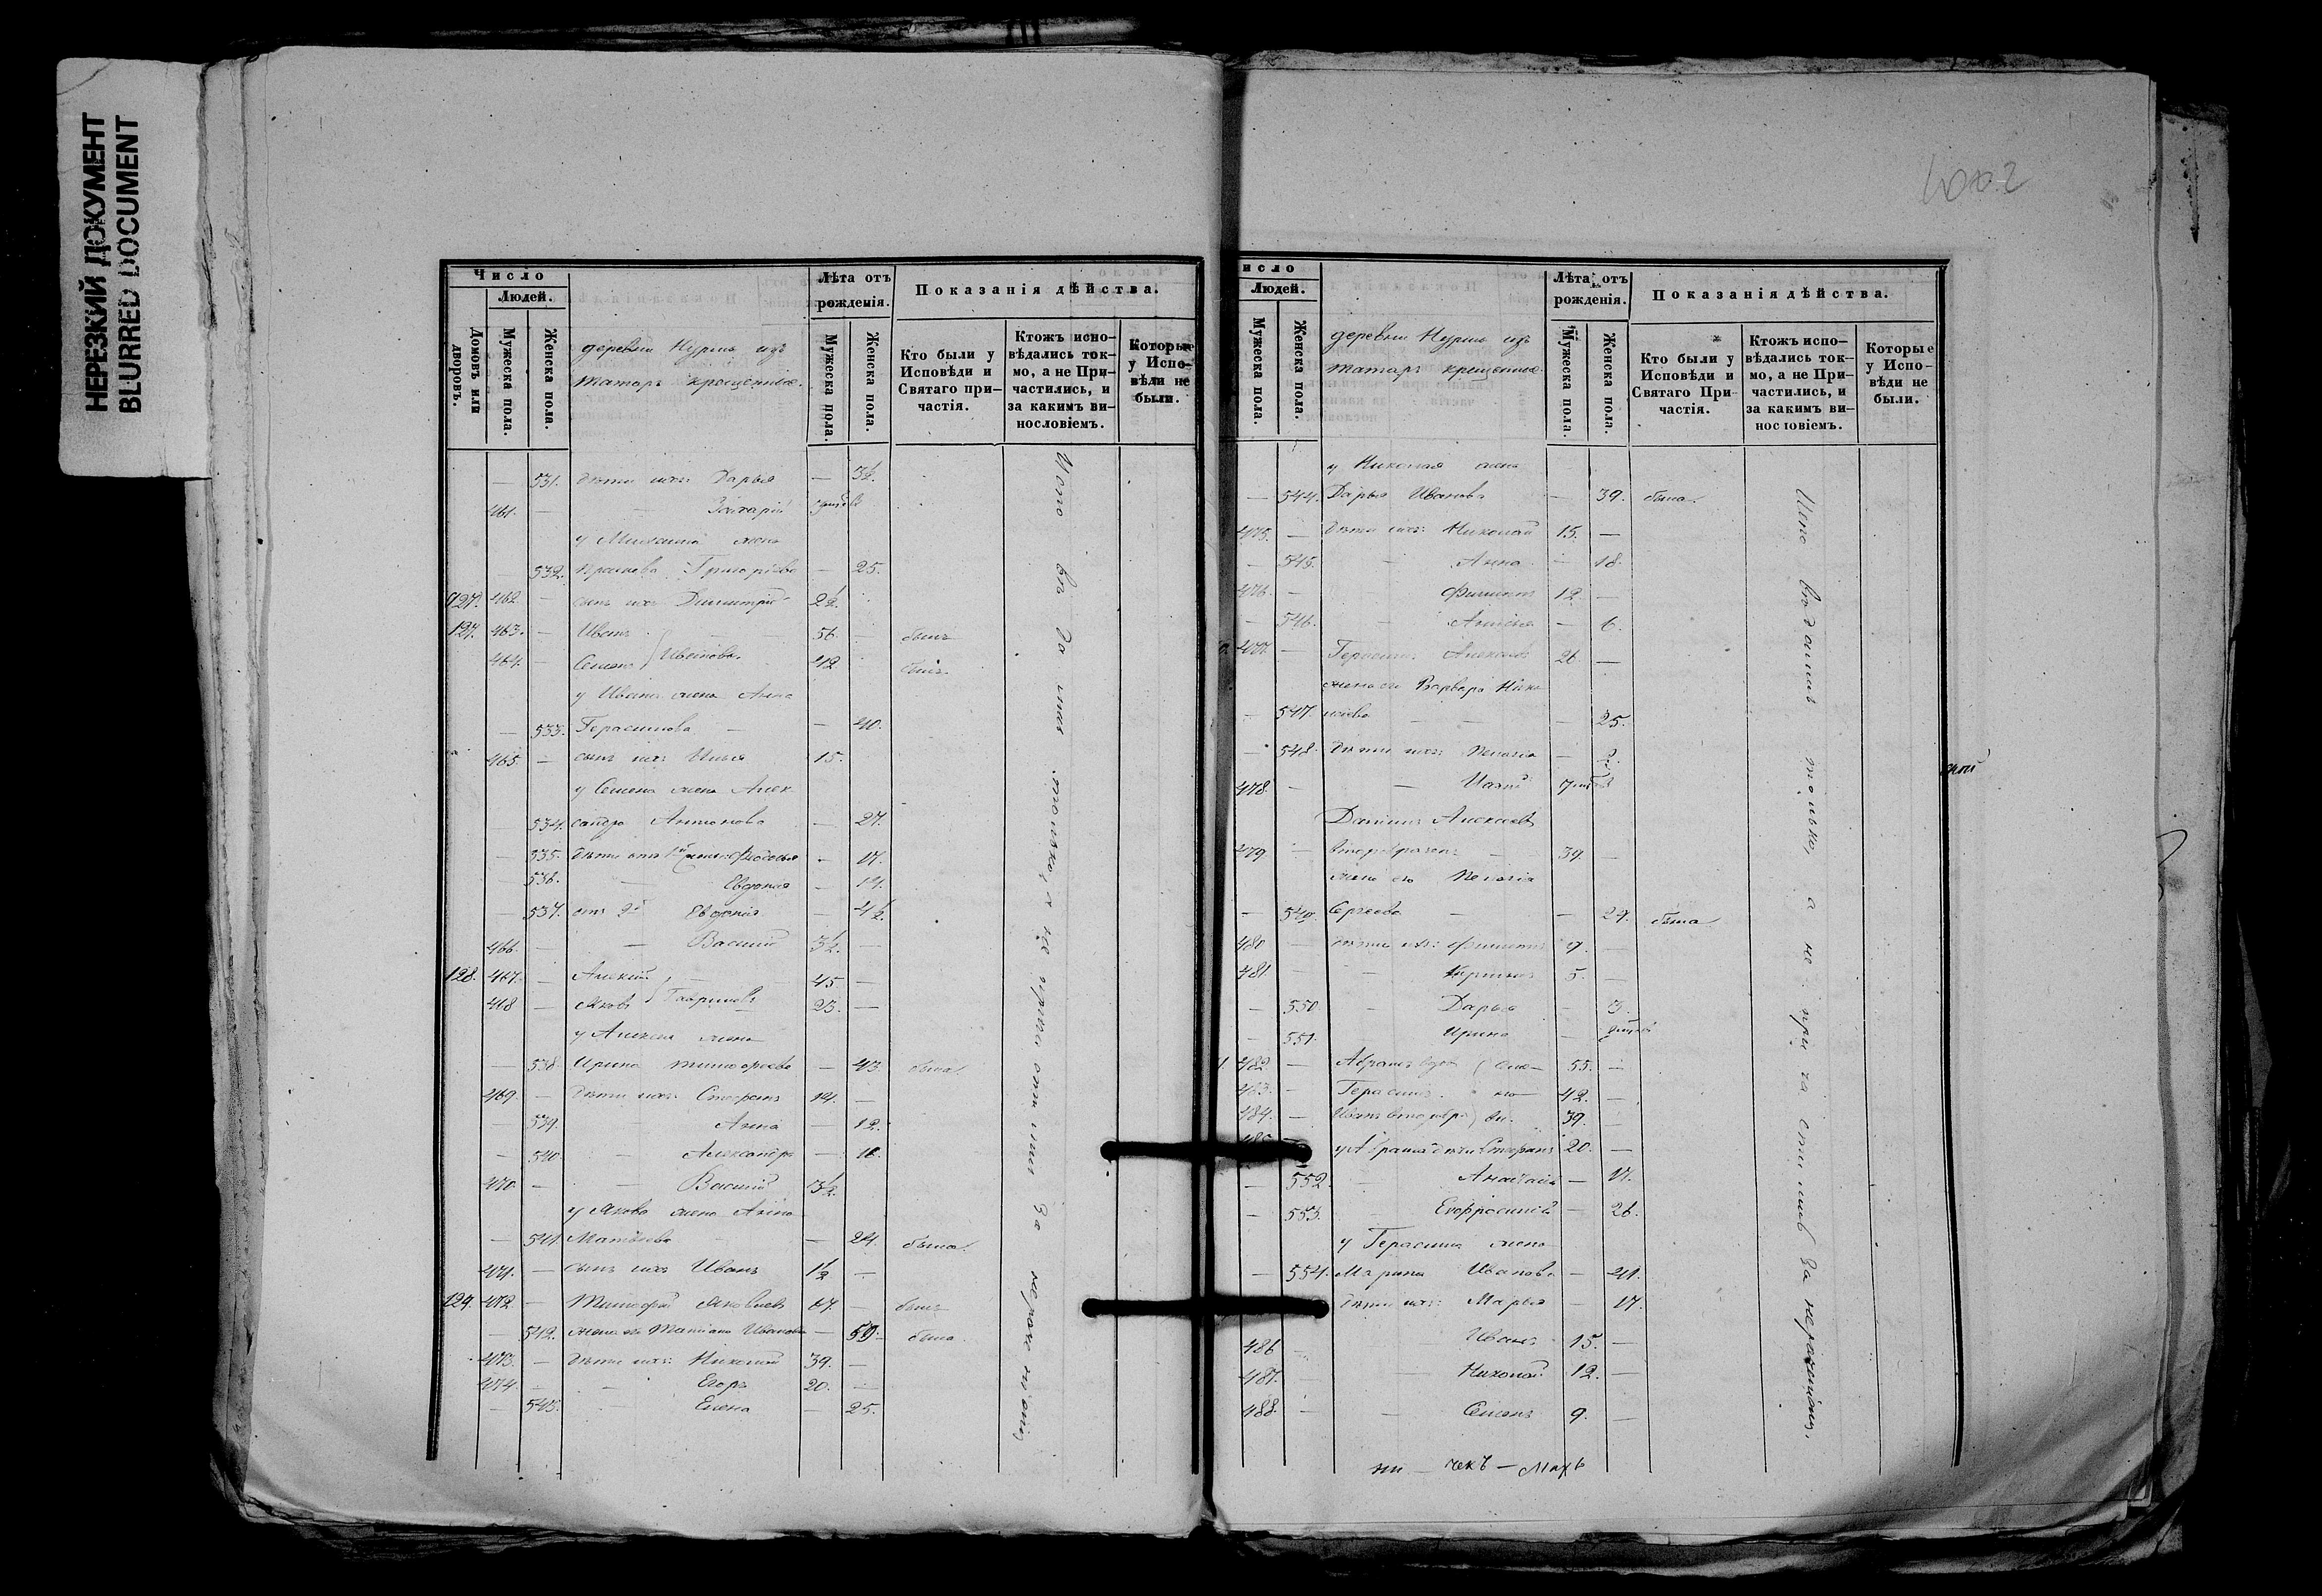 НЕРЕЗКИЙ ДОКУМЕНТ
BLURRED DOCUMENT
Число
Людей.
Домовъ или дворовъ.
Мужеска пола.
Женска пола.
деревни Нурмы изъ
татаръ крещенные
Лѣта отъ
рожденія.
Мужеска пола.
Женска пола.
Показанія дѣйства.
Кто были у
Исповѣди и
Святаго при-
частія.
Ктожъ испо-
вѣдались ток-
мо, а не При-
частились, и
за какимъ ви-
нословіемъ.
Которые
у Испо-
вѣди не
были.
— 531. дѣти ихъ: Дарья — 3½.
461. — — Захарій
у Михаила жена
— 532. Григорьева — 25.
127. 462. — сынъ ихъ Димитрій 2½.
127. 463. — Иванъ — 56. — былъ
464. — Семенъ Ивановы. 42. былъ
у Ивана жена Анна
— 533. Герасимова — — 40.
465. — сынъ ихъ Илья 15.
у Семена жена Алек-
— 534. сандра Антонова — 27.
— 535. дѣти отъ 1й жены: Федосья — 17.
— 536. — Евдокія — 14.
— 537. отъ 2й Евдокія — 4½.
466. — — Василій 3½. —
128. 467. — Алексій — 45 —
468 — Яковъ Гавриловы 23. —
у Алексія жена
— 538. Ирина Тимофеева — 43 была.
469. — дѣти ихъ: Стефанъ 14. —
— 539. — Анна — 12.
— 540. — Александра — 16.
470. — — Василій 3½.
у Якова жена Анна
— 541. Матвѣева — — 24. была.
471. — сынъ ихъ Иванъ 1½ —
129. 472 — Тимофей Яковлевъ 67. — былъ
— 542. жена его Татіана Иванова — 59. была.
473. — дѣти ихъ: Николай 39. —
474. — — Егоръ 20. —
— 543. — Елена — 25.
толь-ко, а не прича сти лись за нерач е ніемъ
исло
Людей.
Мужеска пола.
Женска пола.
деревни Нурмы изъ
татаръ крещенные
Лѣта отъ
рожденія.
Мужеска пола.
Женска пола.
Показанія дѣйства.
Кто были у
Исповѣди и
Святаго При-
частія.
Ктожъ испо-
вѣдались ток-
мо, а не При-
частились, и
за какимъ ви-
нословіемъ.
Которые
у Испо-
вѣди не
были.
у Николая жена
— 544. Дарья Иванова — 39. была.
475. — дѣти ихъ: Николай 15. —
— 545. — Анна — 18.
476. — — Филиппъ 12. —
— 546. — — 6.
477. — Герасимъ Алексѣевъ 26. —
жена его Варвара Нико-
— 547. лаева — — — 25.
— 548. дѣти ихъ: Пелагія — 3.
478. — —
Даніилъ Алексѣевъ
479 — второбрачн. — 39. —
жена его Пелагія
— 549. Сергѣева — — 27. была
480 — дѣти ихъ: Филиппъ 7. —
481. — Кириллъ 5. —
— 550. — Дарья — 3.
— 551. — Ирина —
482 — Абрамъ вдов. Сте- 55. —
483. — Герасимъ 42. —
484. — Иванъ 39. —
у Абрама дѣти: Стефанъ 20. —
— 552. — Анастасія — 17.
— 553. — Евфросинія — 26.
у Герасима жена
— 554. Марина Иванова — 41.
дѣти ихъ: Марья — 17.
486 — — Иванъ 15. —
487. — Николай 12. —
488. — — Семенъ 9. —
только, а не при ча сти лись за нераченіемъ.